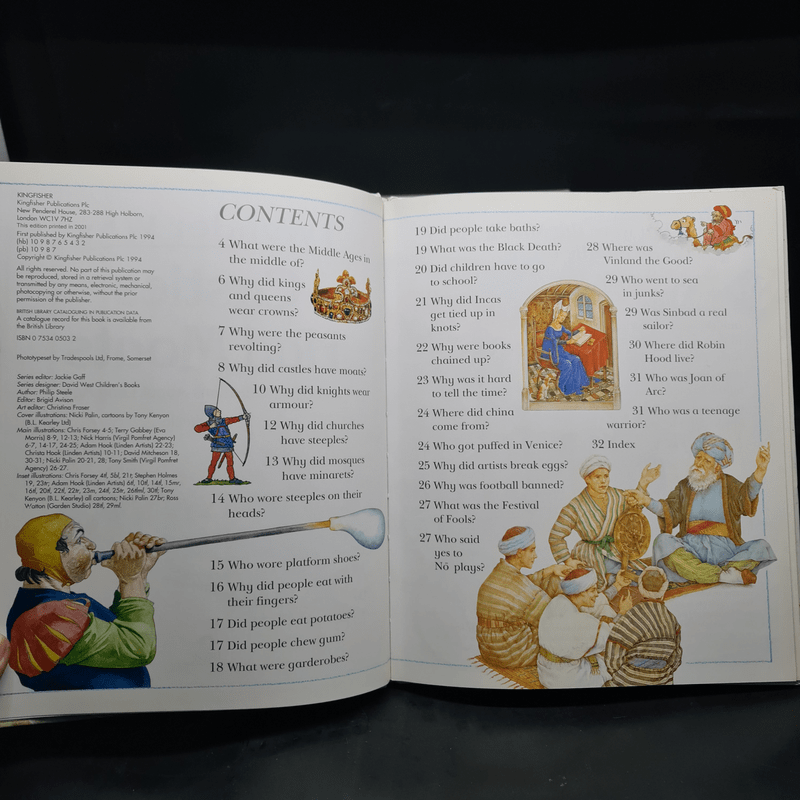 KINGFISHER
Kingfisher Publications Plc
New Penderel House, 283-288 High Holborn,
London WC1V 7HZ
This edition printed in 2001
First published by Kingfisher Publications Plc 1994
(hb) 10 9 8 7 6 5 4 3 2
(pb) 10 9 8 7
Copyright © Kingfisher Publications Plc 1994
All rights reserved. No part of this publication may
be reproduced, stored in a retrieval system or
transmitted by any means, electronic, mechanical,
photocopying or otherwise, without the prior
permission of the publisher.
BRITISH LIBRARY CATALOGUING IN PUBLICATION DATA
A catalogue record for this book is available from
the British Library
ISBN 0 7534 0503 2
Phototypeset by Tradespools Ltd, Frome, Somerset
Series editor: Jackie Gaff
Series designer: David West Children's Books
Author: Philip Steele
Editor: Brigid Avison
Art editor: Christina Fraser
Cover illustrations: Nicki Palin, cartoons by Tony Kenyon
(B.L. Kearley Ltd)
Main illustrations: Chris Forsey 4-5; Terry Gabbey (Eva
Morris) 8-9, 12-13; Nick Harris (Virgil Pomfret Agency)
6-7, 14-17, 24-25; Adam Hook (Linden Artists) 22-23;
Christa Hook (Linden Artists) 10-11; David Mitcheson 18,
30-31; Nicki Palin 20-21, 28; Tony Smith (Virgil Pomfret
Agency) 26-27.
Inset illustrations: Chris Forsey 4tl, 5bl, 21t; Stephen Holmes
19, 23tr; Adam Hook (Linden Artists) 6tl, 10tl, 14tl, 15mr,
16tl, 20tl, 22tl, 22tr, 23m, 24tl, 25tr, 26tml, 30tl; Tony
Kenyon (B.L. Kearley) all cartoons; Nicki Palin 27br; Ross
Watton (Garden Studio) 28tl, 29ml.
CONTENTS
4 What were the Middle Ages in
the middle of?
6 Why did kings
and queens
wear crowns?
7 Why were the peasants
revolting?
8 Why did castles have moats?
10 Why did knights wear
armour?
12 Why did churches
have steeples?
13 Why did mosques
have minarets?
14 Who wore steeples on their
heads?
15 Who wore platform shoes?
16 Why did people eat with
their fingers?
17 Did people eat potatoes?
17 Did people chew gum?
18 What were garderobes?
19 Did people take baths?
19 What was the Black Death?
20 Did children have to go
to school?
21 Why did Incas
get tied up in
knots?
22 Why were books
chained up?
23 Why was it hard
to tell the time?
24 Where did china
come from?
24 Who got puffed in Venice?
25 Why did artists break eggs?
26 Why was football banned?
27 What was the Festival
of Fools?
27 Who said
yes to
Nō plays?
28 Where was
Vinland the Good?
29 Who went to sea
in junks?
29 Was Sinbad a real
sailor?
30 Where did Robin
Hood live?
31 Who was Joan of
Arc?
31 Who was a teenage
warrior?
32 Index